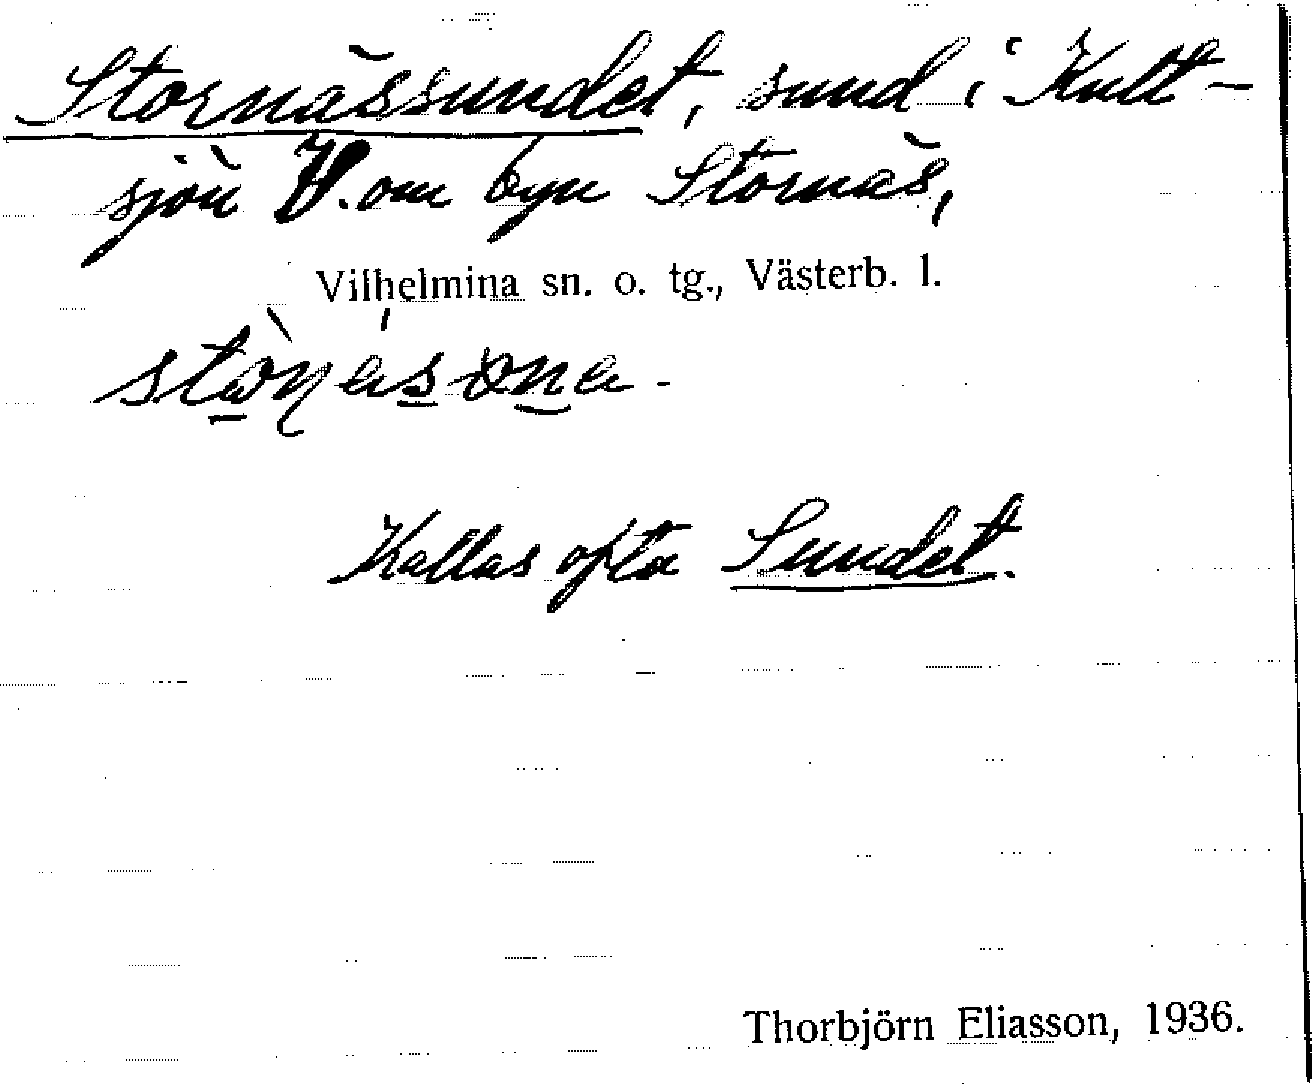 Stornässundet, sund i Kult-
sjön V. om byn Stornäs,
Vilhelmina sn. o. tg., Västerb. l.
Kallas ofta Sundet.
Thorbjörn Eliasson, 1936.